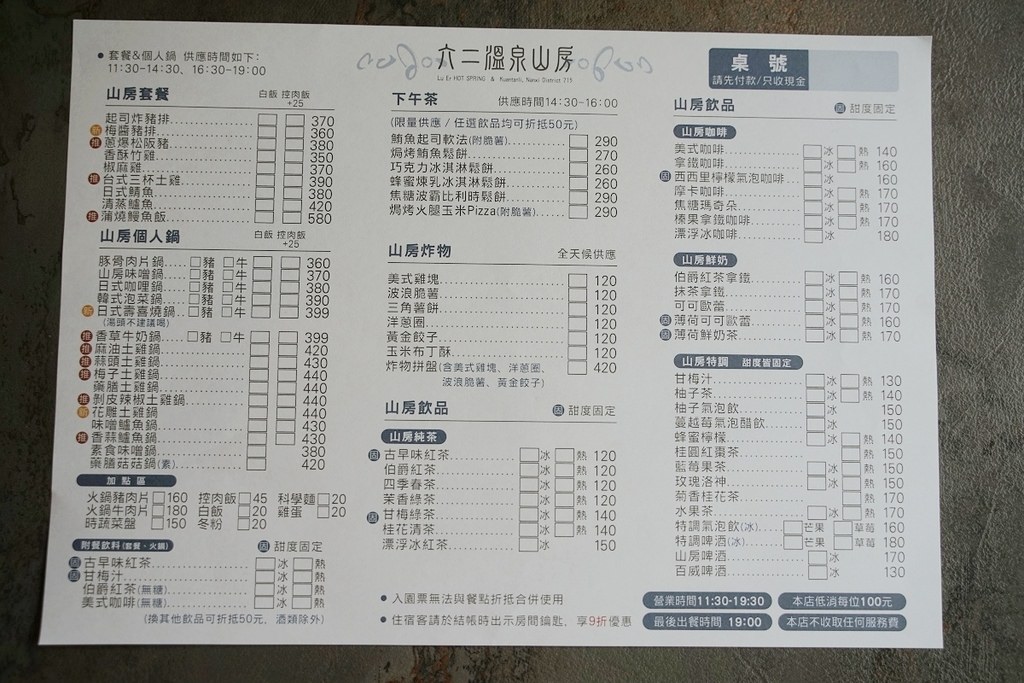 六二溫泉山房
Lu Er HOT SPRING & Kuantanli, Nanxi District 715
桌號
請先付款/只收現金
• 套餐&個人鍋 供應時間如下:
11:30-14:30、16:30-19:00
山房套餐 白飯 控肉飯+25
起司炸豬排 370
新 梅醬豬排 360
推 蔥爆松阪豬 380
香酥竹雞 350
椒麻雞 370
推 台式三杯土雞 390
日式鯖魚 380
清蒸鱸魚 420
推 蒲燒鰻魚飯 580
山房個人鍋 白飯 控肉飯+25
豚骨肉片鍋 □豬 □牛 360
山房味噌鍋 □豬 □牛 370
日式咖哩鍋 □豬 □牛 380
韓式泡菜鍋 □豬 □牛 390
新 日式壽喜燒鍋 □豬 □牛 399
(湯頭不建議喝)
推 香草牛奶鍋 □豬 □牛 399
推 麻油土雞鍋 420
推 蒜頭土雞鍋 430
推 梅子土雞鍋 440
藥膳土雞鍋 440
推 剝皮辣椒土雞鍋 440
新 花雕土雞鍋 440
味噌鱸魚鍋 430
推 香蒜鱸魚鍋 430
素食味噌鍋 380
藥膳菇菇鍋(素) 420
加點區
火鍋豬肉片 □160 控肉飯 □45 科學麵 □20
火鍋牛肉片 □180 白飯 □20 雞蛋 □20
時蔬菜盤 □150 冬粉 □20
附餐飲料(套餐、火鍋) 固 甜度固定
固 古早味紅茶 □冰 □熱
固 甘梅汁 □冰 □熱
伯爵紅茶(無糖) □冰 □熱
美式咖啡(無糖) □冰 □熱
(換其他飲品可折抵50元, 酒類除外)
下午茶 供應時間14:30-16:00
(限量供應 / 任選飲品均可折抵50元)
鮪魚起司軟法(附脆薯) 290
焗烤鮪魚鬆餅 270
巧克力冰淇淋鬆餅 260
蜂蜜煉乳冰淇淋鬆餅 260
焦糖波霸比利時鬆餅 290
焗烤火腿玉米Pizza(附脆薯) 290
山房炸物 全天候供應
美式雞塊 120
波浪脆薯 120
三角薯餅 120
洋蔥圈 120
黃金餃子 120
玉米布丁酥 120
炸物拼盤(含美式雞塊、洋蔥圈、 420
波浪脆薯、黃金餃子)
山房飲品 固 甜度固定
山房純茶
固 古早味紅茶 □冰 □熱 120
伯爵紅茶 □冰 □熱 120
四季春茶 □冰 □熱 120
茉香綠茶 □冰 □熱 120
固 甘梅綠茶 □冰 □熱 140
桂花清茶 □冰 □熱 140
漂浮冰紅茶 □冰 150
• 入園票無法與餐點折抵合併使用
• 住宿客請於結帳時出示房間鑰匙, 享9折優惠
山房飲品 固 甜度固定
山房咖啡
美式咖啡 □冰 □熱 140
拿鐵咖啡 □冰 □熱 160
固 西西里檸檬氣泡咖啡 □冰 160
摩卡咖啡 □冰 □熱 170
焦糖瑪奇朵 □冰 □熱 170
榛果拿鐵咖啡 □冰 □熱 170
漂浮冰咖啡 □冰 180
山房鮮奶
伯爵紅茶拿鐵 □冰 □熱 160
抹茶拿鐵 □冰 □熱 170
可可歐蕾 □冰 □熱 170
固 薄荷可可歐蕾 □冰 □熱 160
固 薄荷鮮奶茶 □冰 □熱 170
山房特調 甜度皆固定
甘梅汁 □冰 □熱 130
柚子茶 □冰 □熱 140
柚子氣泡飲 □冰 150
蔓越莓氣泡醋飲 □冰 150
蜂蜜檸檬 □冰 □熱 140
桂圓紅棗茶 □熱 150
藍莓果茶 □冰 □熱 150
玫瑰洛神 □冰 □熱 150
菊香桂花茶 □熱 170
水果茶 □冰 □熱 170
特調氣泡飲(冰) □芒果 □草莓 160
特調啤酒(冰) □芒果 □草莓 180
山房啤酒 □冰 170
百威啤酒 □冰 130
營業時間11:30-19:30
本店低消每位100元
最後出餐時間 19:00
本店不收取任何服務費